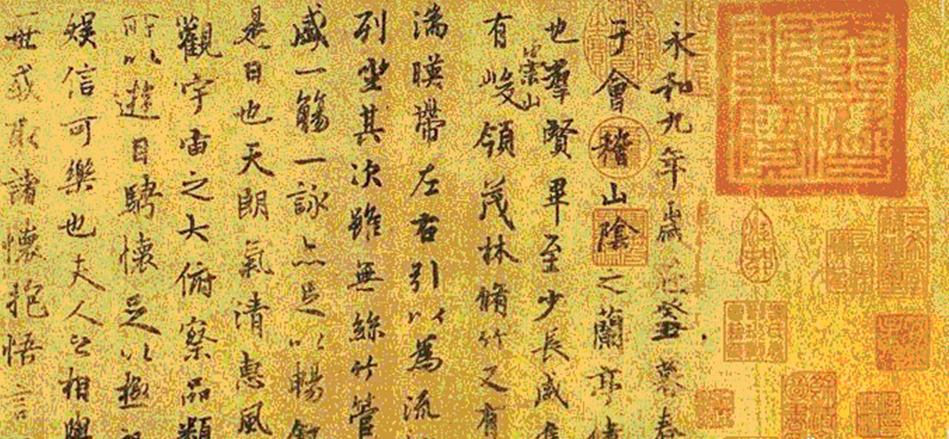 永和九年歲在癸丑暮春
于會稽山陰之蘭亭脩
也羣賢畢至少長咸集
有崇山峻領茂林脩竹又有
湍暎帶左右引以為流
列坐其次雖無絲竹管
盛一觴一詠亦足以暢叙
是日也天朗氣清惠風
觀宇宙之大俯察品類
所以遊目騁懷足以極視
娛信可樂也夫人之相與
世或取諸懷抱悟言